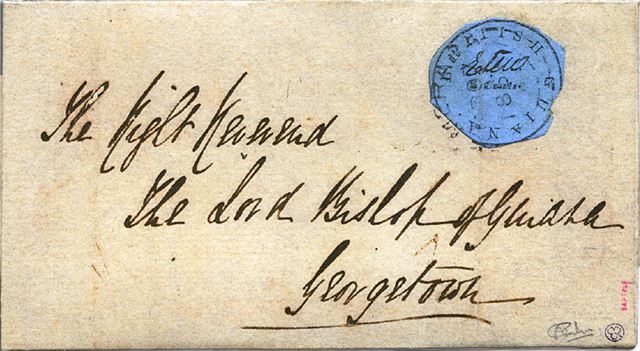 BRITISH GUIANA
The Right Reverend
The Lord Bishop of Guiana
Georgetown